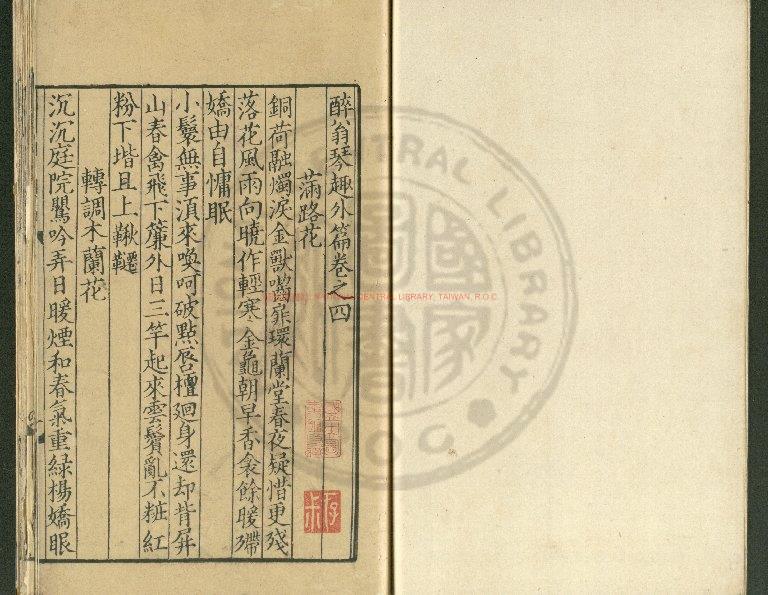 醉翁琴趣外篇卷之四
滿路花
銅荷融燭淚金獸嚙扉環蘭堂春夜疑惜更殘
落花風雨向曉作輕寒金龜朝早香衾餘暖殢
嬌由自慵眠
小鬟無事須來喚呵破點唇檀廻身還却背屏
山春禽飛下簾外日三竿起來雲鬢亂不粧紅
粉下堦且上鞦韆
轉調木蘭花
沉沉庭院鸎吟弄日暖煙和春氣重緑楊嬌眼
NATIONAL CENTRAL LIBRARY, TAIWAN, R.O.C
CENTRAL LIBRARY